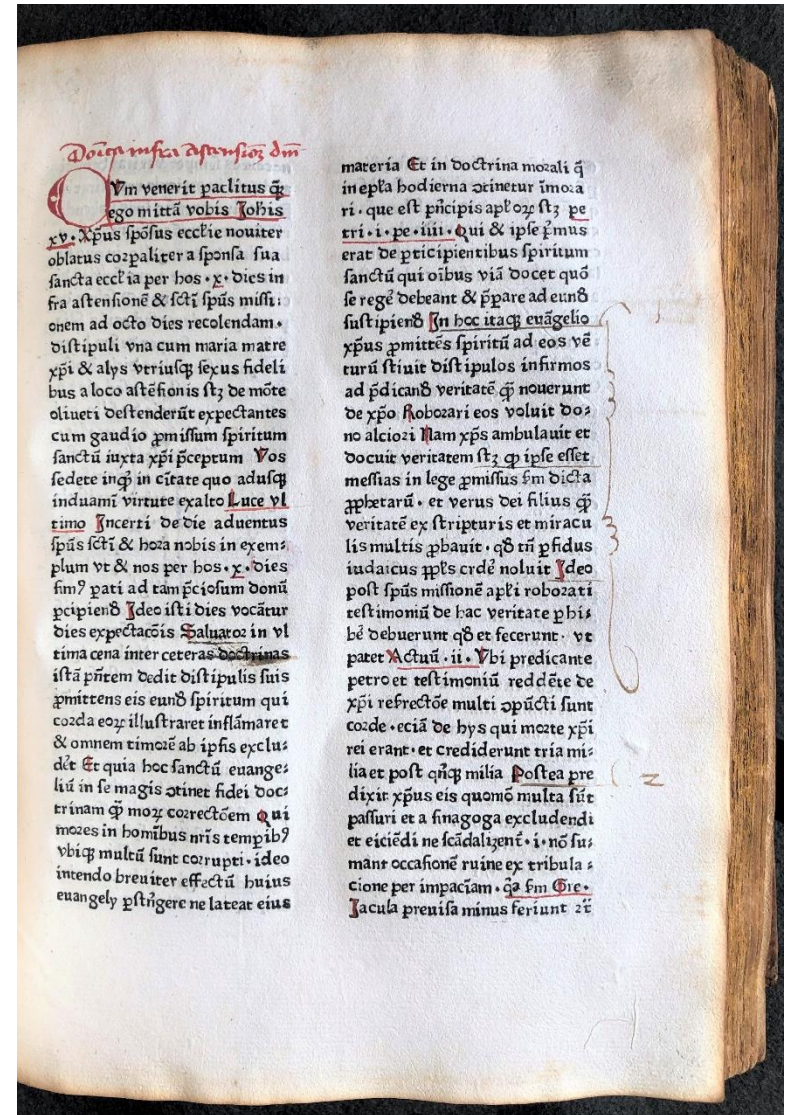 Doı̅ca infra Ascensioꝫ dm̅
CVm venerit paclitus q̅ꝫ
ego mitta̅ vobis Joh̅is
xv. Xp̅us spo̅sus eccl̅ie nouiter
oblatus corꝑaliter a sponsa sua
sancta eccl̅ia per hos .x. dies in
fra ascensione̅ & sc̅ti sp̅us missi:
onem ad octo dies recolendam.
discipuli vna cum maria matre
xp̅i & alys vtriusqꝫ sexus fideli
bus a loco asce̅sionis scꝫ de mo̅te
oliueti descenderu̅t expectantes
cum gaudio ꝓmissum spiritum
sanctu̅ iuxta xp̅i p̅ceptum Vos
sedete inq̅ꝫ in citate quo adusqꝫ
induami̅ virtute exalto Luce vl
timo Incerti de die aduentus
sp̅us sc̅ti & hora nobis in exem:
plum vt & nos per hos .x. dies
sim⁹ pati ad tam p̅ciosum donu̅
ꝑcipiend̅ Ideo isti dies voca̅tur
dies expectaco̅is Saluator in vl
tima cena inter ceteras doctrinas
ista̅ pn̅tem dedit discipulis suis
ꝓmittens eis eund̅ spiritum qui
corda eoꝝ illustraret infla̅maret
& omnem timore̅ ab ipsis exclu:
de̅t Et quia hoc sanctu̅ euange:
liu̅ in se magis ɔtinet fidei doc:
trinam q̅ꝫ moꝝ correcto̅em Qui
mores in homi̅bus nr̅is tempib⁹
vbiqꝫ multu̅ sunt corrupti. ideo
intendo breuiter effectu̅ huius
euangely ꝑstri̅gere ne lateat eius
materia Et in doctrina morali q̅
in epl̅a hodierna ɔtinetur i̅mora
ri. que est pn̅cipis apl̅oꝝ scꝫ pe
tri. i. pe. iiii. Qui & ipse p̅mus
erat de ꝑticipientibus spiritum
sanctu̅ qui oi̅bus via̅ docet quo̅
se rege̅ debeant & p̅ꝑare ad eund̅
suscipiend̅ In hoc itaqꝫ eua̅gelio
xp̅us ꝓmitte̅s spiritu̅ ad eos ve̅
turu̅ sciuit discipulos infirmos
ad p̅dicand̅ veritate̅ q̅ꝫ nouerunt
de xp̅o Roborari eos voluit do:
no alciori Nam xp̅s ambulauit et
docuit veritatem scꝫ ꝙ ipse esset
messias in lege ꝓmissus s̅m dicta
ꝓphetaru̅. et verus dei filius q̅ꝫ
veritate̅ ex scripturis et miracu
lis multis ꝓbauit. qd̅ tn̅ ꝑfidus
iudaicus ppl̅s crde̅ noluit Ideo
post sp̅us missione̅ apl̅i roborati
testimoniu̅ de hac veritate ꝑhi:
be̅ debuerunt qd̅ et fecerunt. vt
patet Actuu̅. ii. Vbi predicante
petro et testimoniu̅ redde̅te de
xp̅i resrecto̅e multi ɔpu̅cti sunt
corde. ecia̅ de hys qui morte xp̅i
rei erant. et crediderunt tria mi:
lia et post qn̅qꝫ milia Postea pre
dixit xp̅us eis quomo̅ multa su̅t
passuri et a sinagoga excludendi
et eicie̅di ne sca̅dalizent̅. i. no̅ su:
mant occasione̅ ruine ex tribula :
cione per impacia̅m. q̅a s̅m Gre.
Jacula preuisa minus feriunt ⁊ c̅
2